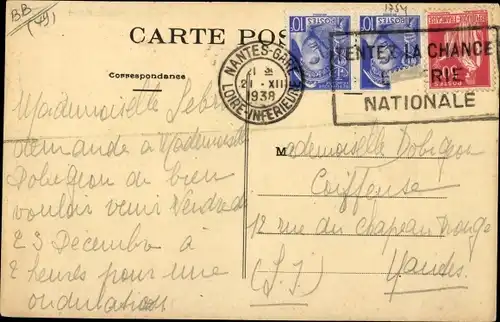 BB
(49)
1734
CARTE POS
Correspondance
NANTES-GARE
21 - XII
1938
LOIRE-INFERIEURE
POSTES
10
POSTES
10
TENTEZ LA CHANCE
RIE
NATIONALE
Mademoiselle
demande à Mademoiselle
Dobigeon de bien
vouloir venir Vendredi
23 Décembre à
2 heures pour une
ondulation
M
ademoiselle Dobigeon
Coiffeuse
12 rue du Chapeau Rouge
(L. I.) Nantes